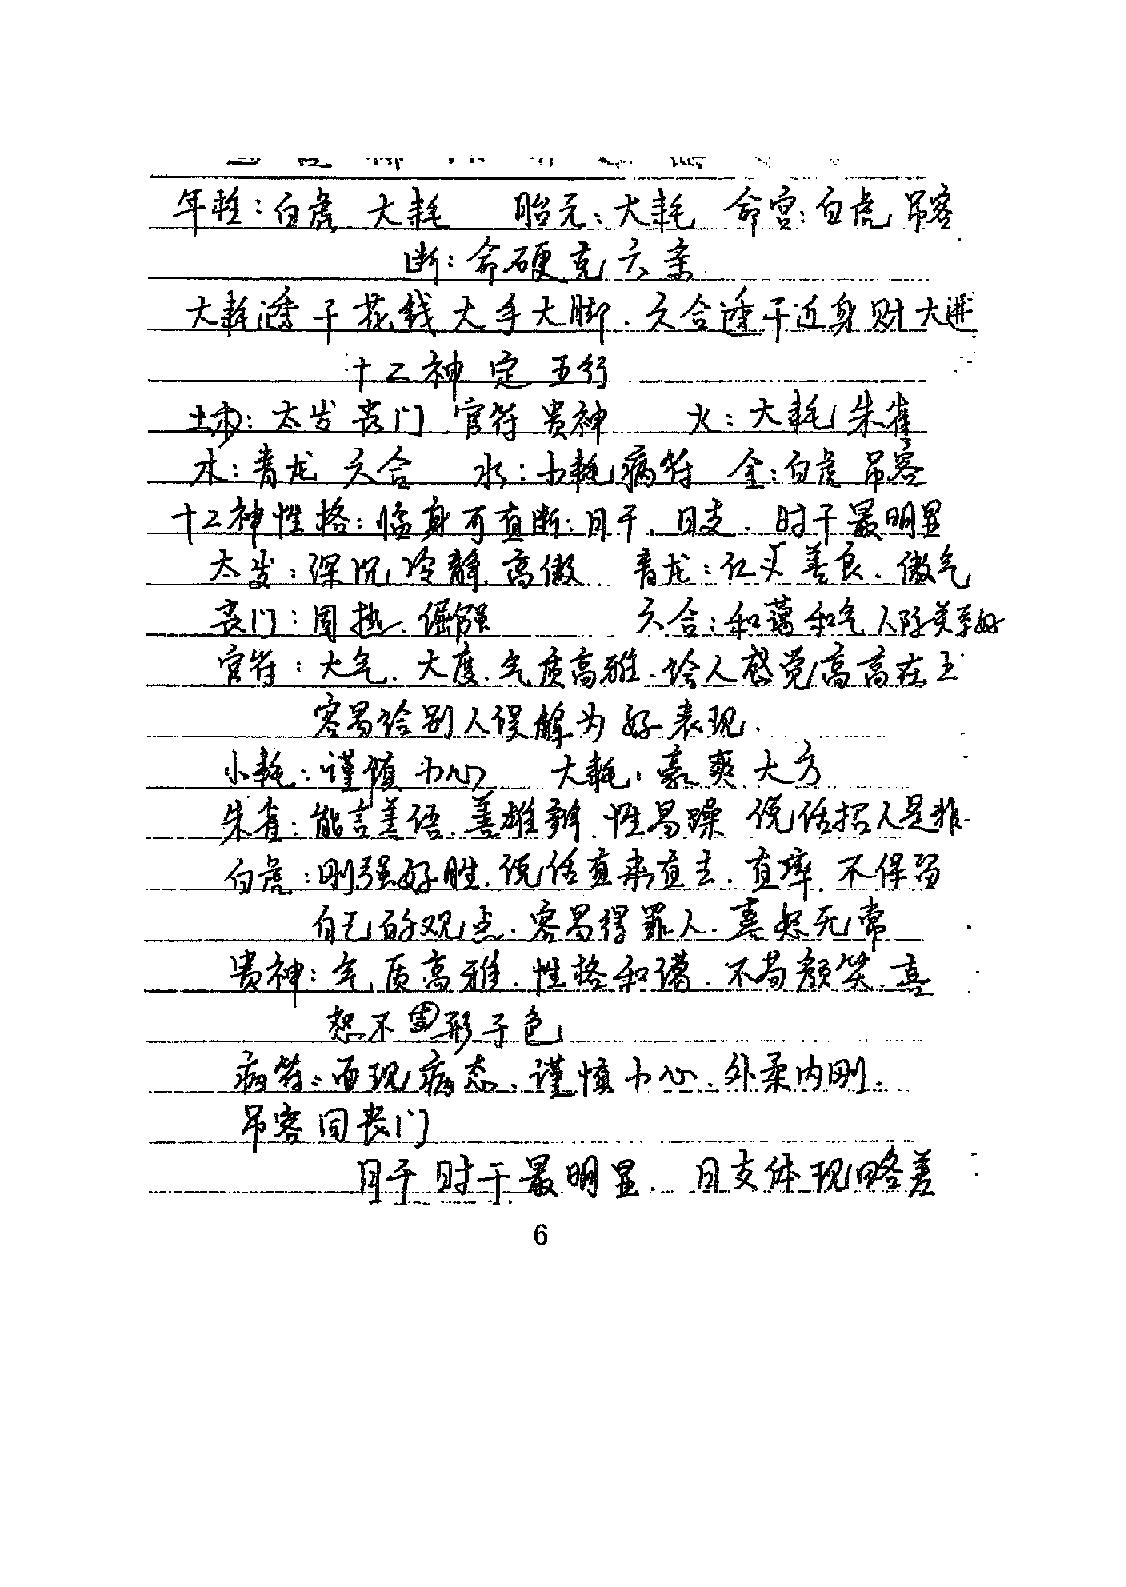 年柱：白虎 大耗 胎元：大耗 命宫：白虎 吊客
断：命硬克六亲
大耗透干花钱大手大脚．六合透干近身财大进
十二神定五行
土：太岁 丧门 官符 贵神 火：大耗 朱雀
木：青龙 六合 水：小耗 病符 金：白虎 吊客
十二神性格：临身可直断：日干．日支．时干最明显
太岁：深沉 冷静 高傲 青龙：仁义 善良．傲气
丧门：固执．倔强 六合：和蔼和气 人际关系好
官符：大气．大度．气质高雅．给人感觉高高在上
容易给别人误解为好表现．
小耗：谨慎小心 大耗：豪爽 大方
朱雀：能言善语．善雄辩．性易躁 说话招人是非．
白虎：刚强好胜．说话直来直去．直率．不保留
自己的观点．容易得罪人．喜怒无常
贵神：气质高雅．性格和谐．不苟颜笑．喜
怒不形于色
病符：面现病态．谨慎小心．外柔内刚．
吊客同丧门
日干时干最明显．日支体现略差
6